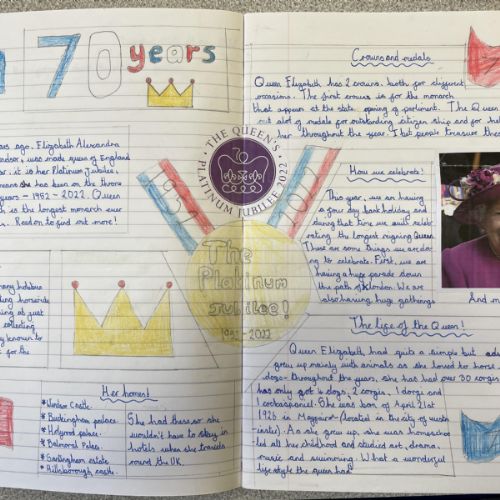 70 years
ars ago, Elizabeth Alexandra
indsor, was made queen of England
ar. it is her Platinum Jubilee,
means she has been on the throne
years - 1952 - 2022. Queen
th is the longest monarch ever
. Read on to find out more!
many hobbies
ding horseride
ning at just
collecting
ly known to
t for the
Her homes!
*Windsor Castle.
*Buckingham palace.
*Holyrod palace.
*Balmoral Palas
*Sandringham estate
*Hillsborough castle.
She had these so she
wouldn't have to stay in
hotels when she travels
round the UK.
THE QUEEN'S
PLATINUM JUBILEE 2022
1952
2022
The
Platinum
Jubilee!
1952-2022
Crowns and medals
Queen Elizabeth has 2 crowns, both for different
occasions. The first crowns is for the monarch
that appears at the state opening of parliment. The Queen
out alot of medals for outstanding citizen ship and for hel
her throughout the year. But people treasure these
How we celebrate!
This year, we are having
a four day bank holiday and
during that time we will celeb
rating the longest reigning Queen.
These are some things we are do
ing to celebrate. First, we are
having a huge parade down
the path of London. We are
also having huge gatherings
And m
The life of the Queen!
Queen Elizabeth had quite a simple but ad
grew up mainly with animals as she loved her horse
dogs - throughout the years, she has had over 30 corgis
has only got 4 dogs, 2 corgis, 1 dorgi and
1 cockaspaniel. She was born of April 21st
1926 in Mayfair (located in the city of westm
inster) As she grew up, she was homeschool
led all her childhood and studied art, drama,
music and swimming. What a wonderful
life style the queen has